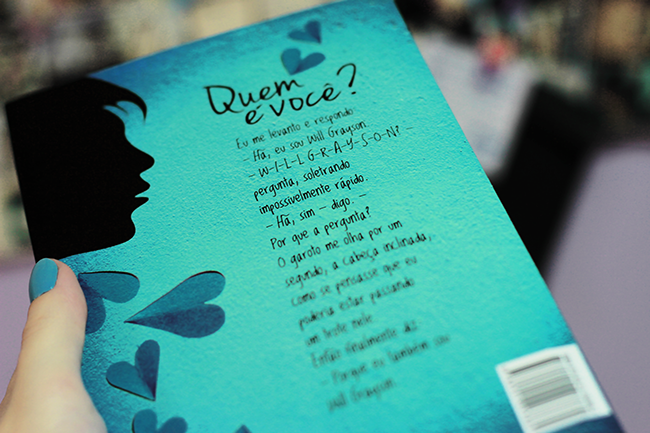 Quem
é você?
Eu me levanto e respondo
– Hã, eu sou Will Grayson.
– W-I-L-L-G-R-A-Y-S-O-N? –
pergunta, soletrando
impossivelmente rápido.
– Hã, sim – digo. –
Por que a pergunta?
O garoto me olha por um
segundo, a cabeça inclinada,
como se pensasse que eu
poderia estar passando
um trote nele.
Então finalmente diz
– Porque eu também sou
Will Grayson.